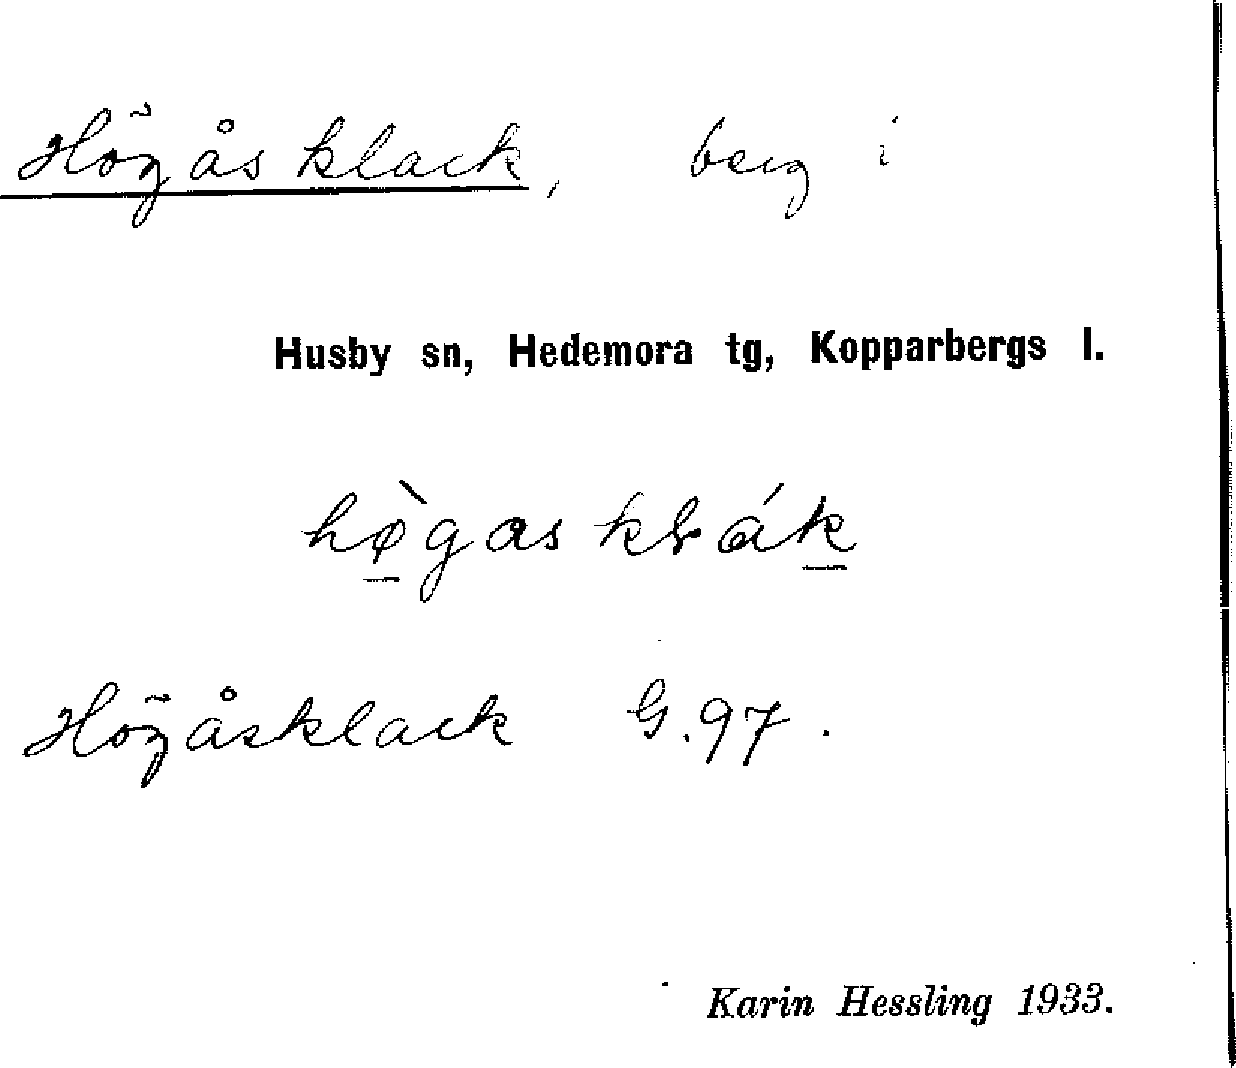 Högåsklack, berg i
Husby sn, Hedemora tg, Kopparbergs l.
Högåsklack G.97.
Karin Hessling 1933.